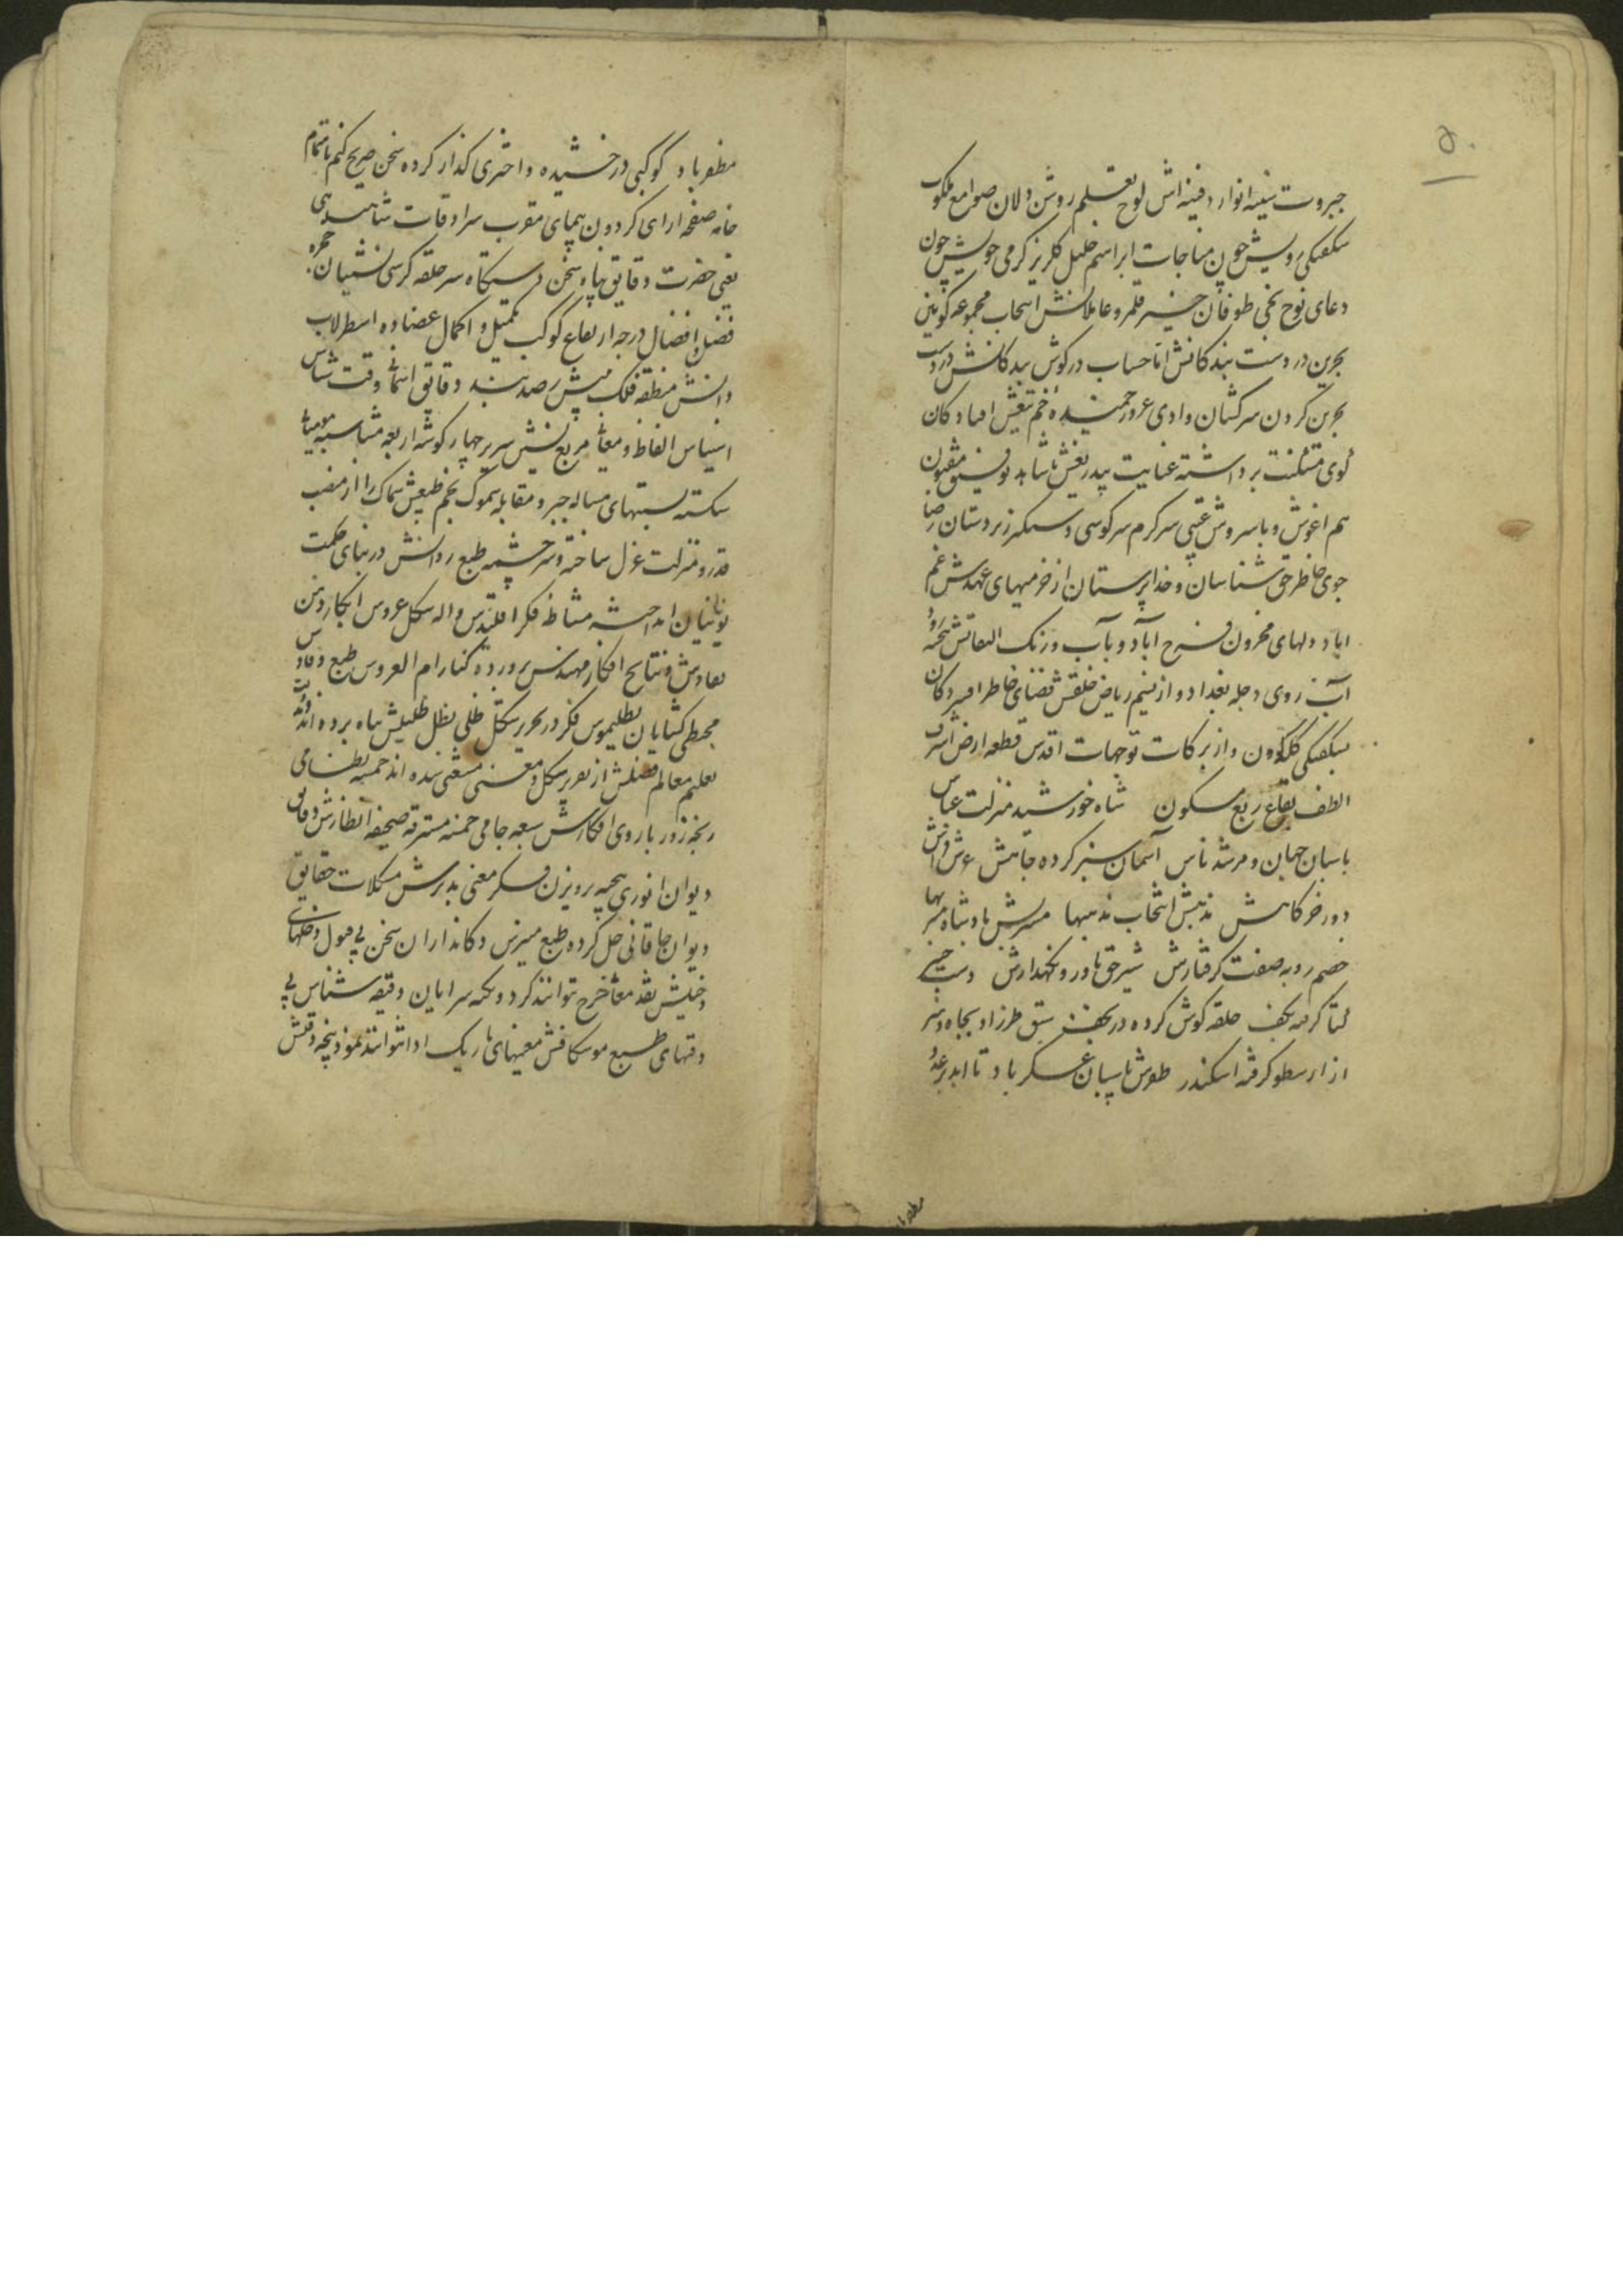 ۵۰
جبروت سفینه انوار دفینه اش لوح تعلیم روشن دلان صوامع ملکوت
شکفتکی رویش چون مناجات ابراهیم خلیل کلریز کرمی خویش چون
دعای نوح نجی طوفان خیز قلمرو عاملانش اسحاب مجموعه کونین
بحرین در دست بندکانش اناحساب در کوش بندکانش در دست
بحرین کردن سرکشان وادی غرور خمیده خم تیغش افتادکان
کوی مسکنت برداشته عنایت بیدریغش با شاهد توفیق مقبون
هم اغوش و با سروش غیبی سرکرم سرکوشی دستکیر زبردستان رضا
جوی خاطر حق شناسان و خداپرستان از خرمیهای عهدش غم
اباد دلهای محزون فرح آباد و بآب و رنک التفاتش
آب روی دجله بغداد و از نسیم ریاض خلقش فضای خاطر افسردکان
بشکفتکی کلکون و از برکات توجهات اقدس قطعه ارض اشرف
الطف بقاع ربع مسکون شاه خورشید منزلت عباس
پاسبان جهان و مرشد ناس آسمان سبز کرده جاهش عرش فرش
دور خرکاهش مذهبش انتخاب مذهبها مشربش پادشاه مشربها
خصم روبه صفت کرفتارش شیر حق یاور و نکهدارش دست خیبر
کشا کرفته بکف حلقه کوش کرده در نجف سبق طرز او بجاه و هنر
از ارسطو کرفته اسکندر طوش پاسبان عسکر باد تا ابد بر عدو
مظفر باد
مظفر باد کوکبی درخشیده و اختری کذار کرده سخن صریح کنم با تمام
خانه صفحه ارای کردون پیمای مقرب سرادقات شاهنشاهی
یعنی حضرت دقایق پناه سخن دستکاه سر حلقه کرسی نشینان حجره
فضل و افضال درجه ارتفاع کوکب تکمیل و اکمال عضاده اسطرلاب
دانش منطقه فلک بینش رصد بند دقایق اسمانی وقت شناس
اساس الفاظ و معانی مربع نشین سریر چهار کوشه اربعه متناسبه مومیائی
شکسته نسبتهای مساله جبر و مقابله سموک نجم طبعش سماک را از منصب
قدر و منزلت عزل ساخته و سرچشمه طبع ردانش در بنای حکمت
یونانیان انداخته مشاطه فکر اقلیدس واله شکل عروس ابکار و من
بقا دوش و نتایج افکار مهندس پرورده کنار ام العروس طبع وقاد
مجسطی کشایان بطلیموس فکر در تحریر شکل ظلی بظل ظلیلش پناه برده اند و
تعلیم معالم فضلش از تقریر شکل و مغنی مستغنی شده اند خمسه نظامی
پنجه زور بازوی افکارش سبعه جامی خمسه مسترقه صحیفه انظارش دقایق
دیوان انوری بیخته پرویزن فکر معنی پدیرش مشکلات حقایق
دیوان خاقانی حل کرده طبع منیرش دکانداران سخن بی قبول دخلهای
دخیلش نقد معانی خرج نتوانند کرد و نکته سرایان دقیقه شناس بی
دقتهای طبع موشکافش معنیهای باریک ادا نتوانند نمود پنجه دقتش